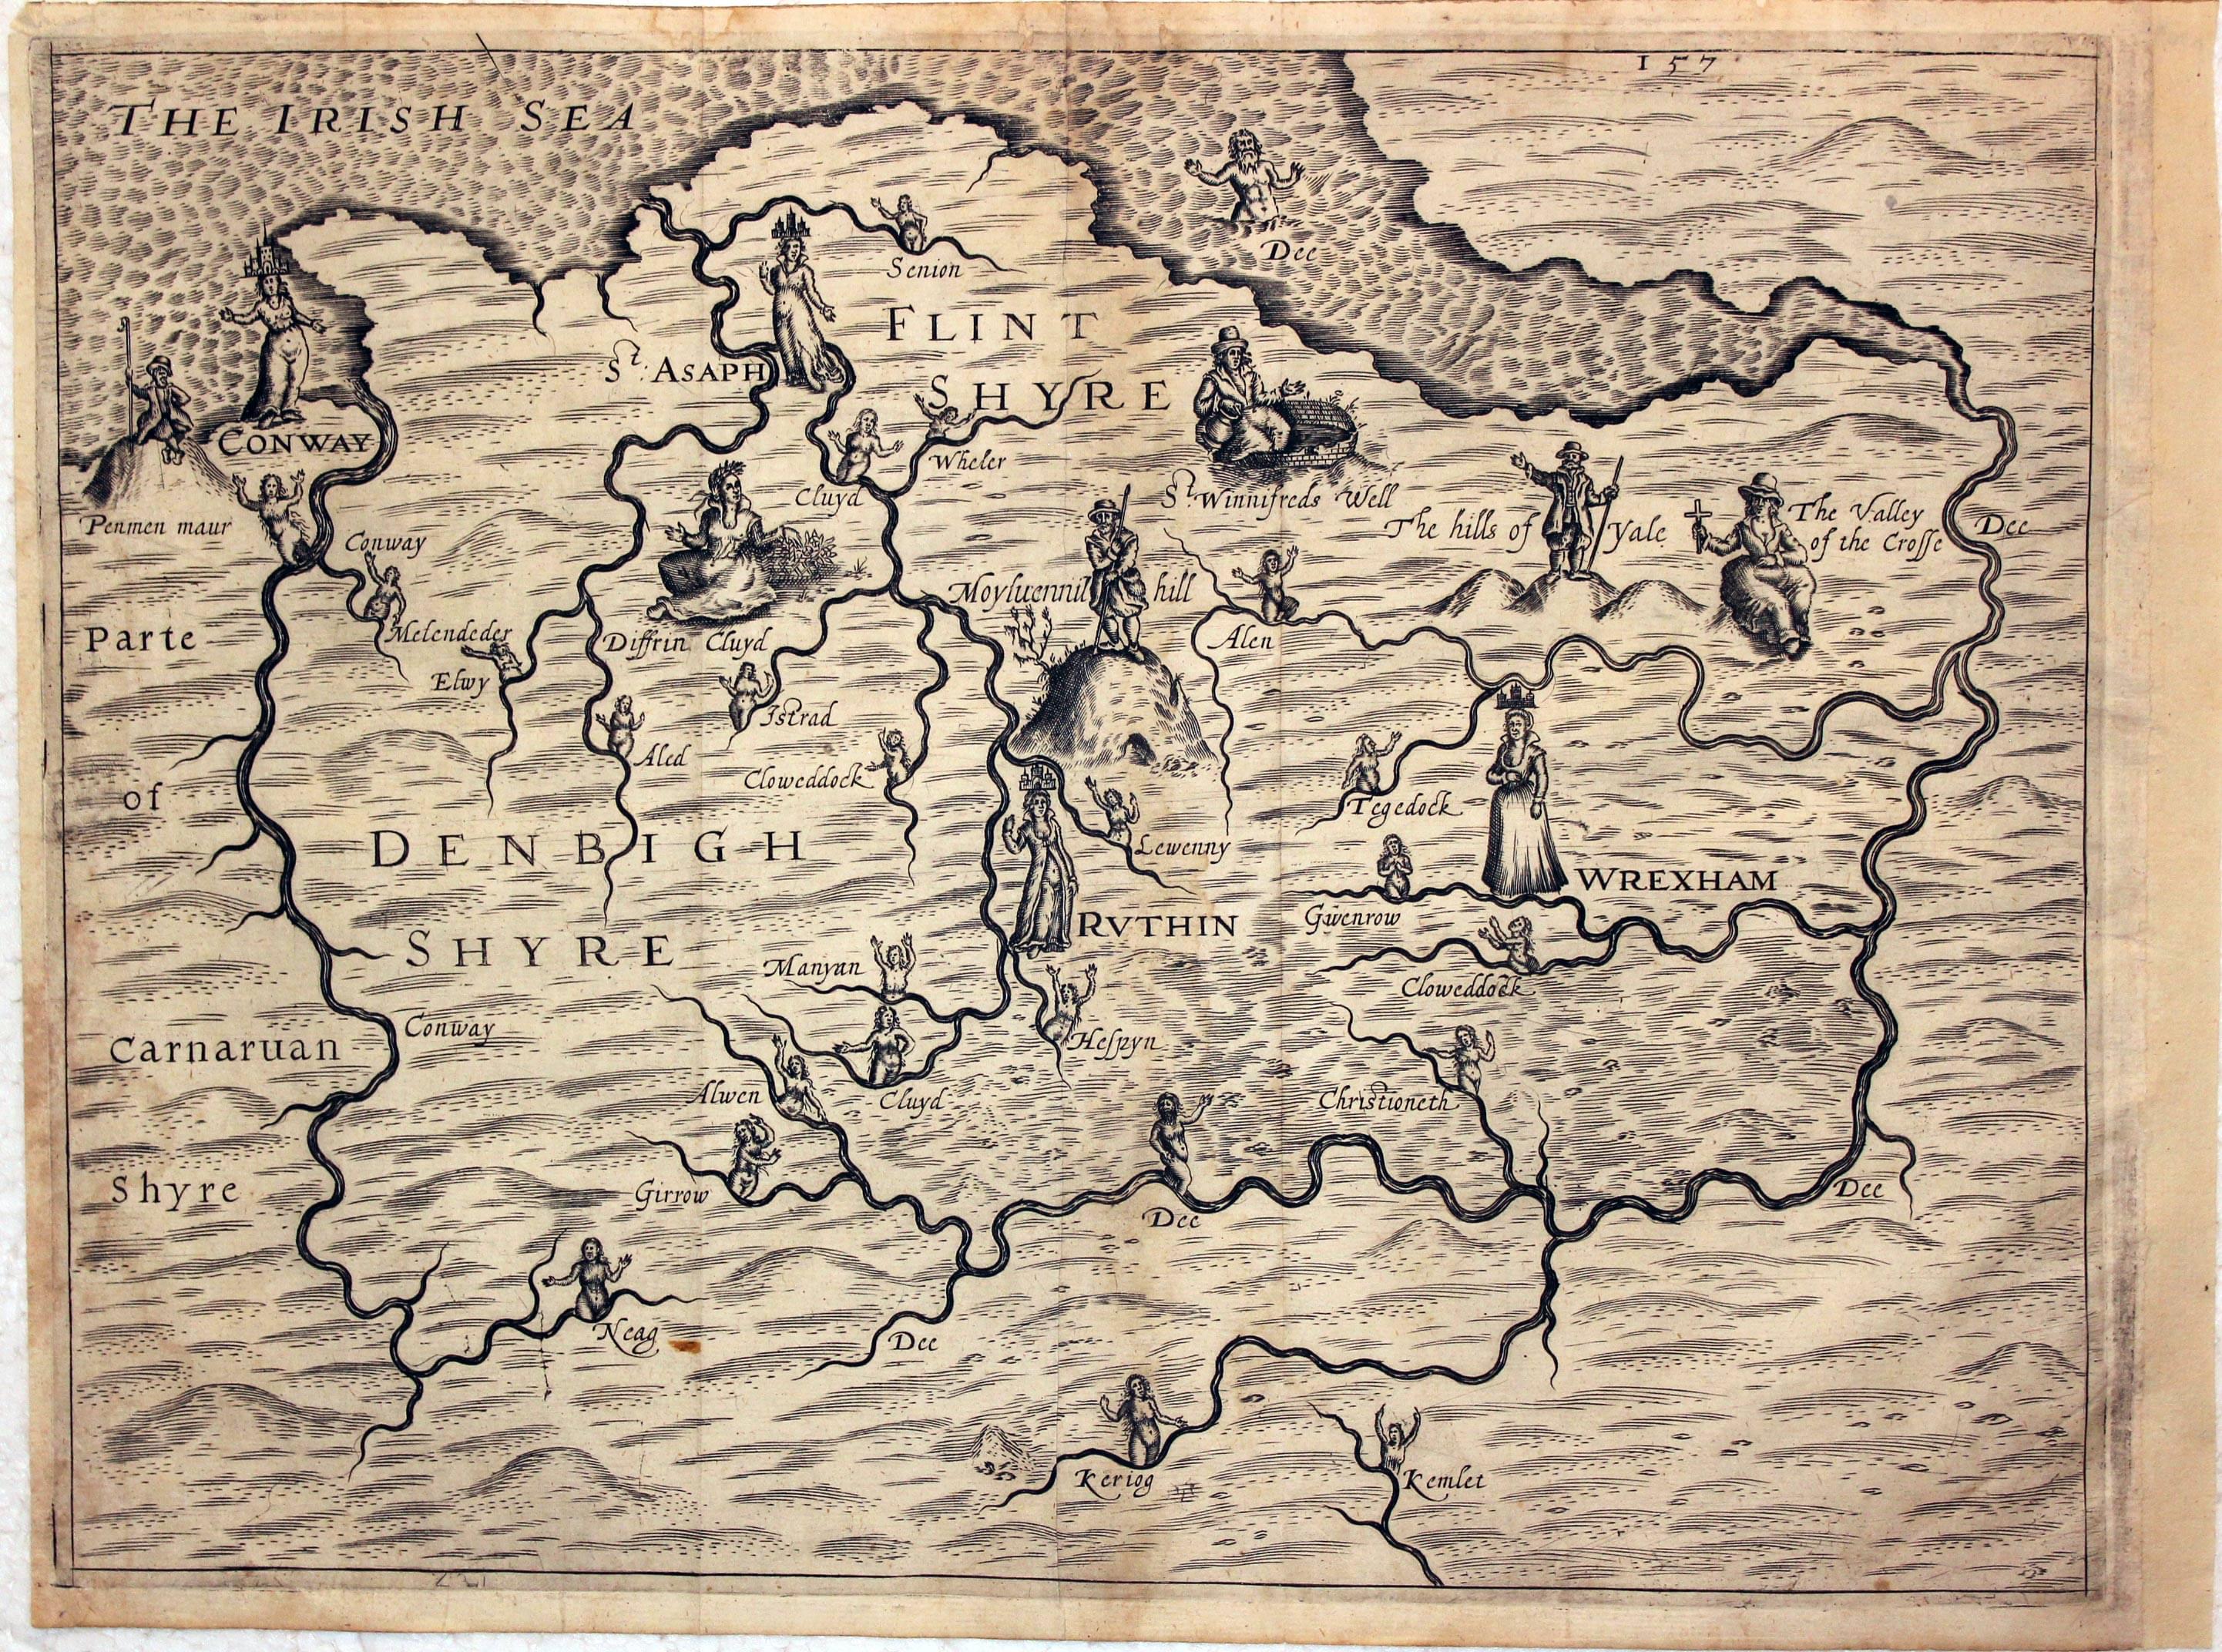 157
THE IRISH SEA
Dee
Senion
FLINT
SHYRE
St. ASAPH
CONWAY
Wheler
Cluyd
St Winnifreds Well
Penmen maur
The hills of Yale
The Valley
of the Crosse
Dee
Conway
Moyluennil hill
Melendeder
Diffrin Cluyd
Alen
Parte
Elwy
Istrad
Aled
Cloweddock
of
Tegedock
DENBIGH
Lewenny
WREXHAM
Gwenrow
RVTHIN
SHYRE
Manyan
Cloweddock
Conway
Carnaruan
Hespyn
Alwen
Cluyd
Christioneth
Shyre
Girrow
Dee
Dee
Neag
Dee
Keriog
Kemlet